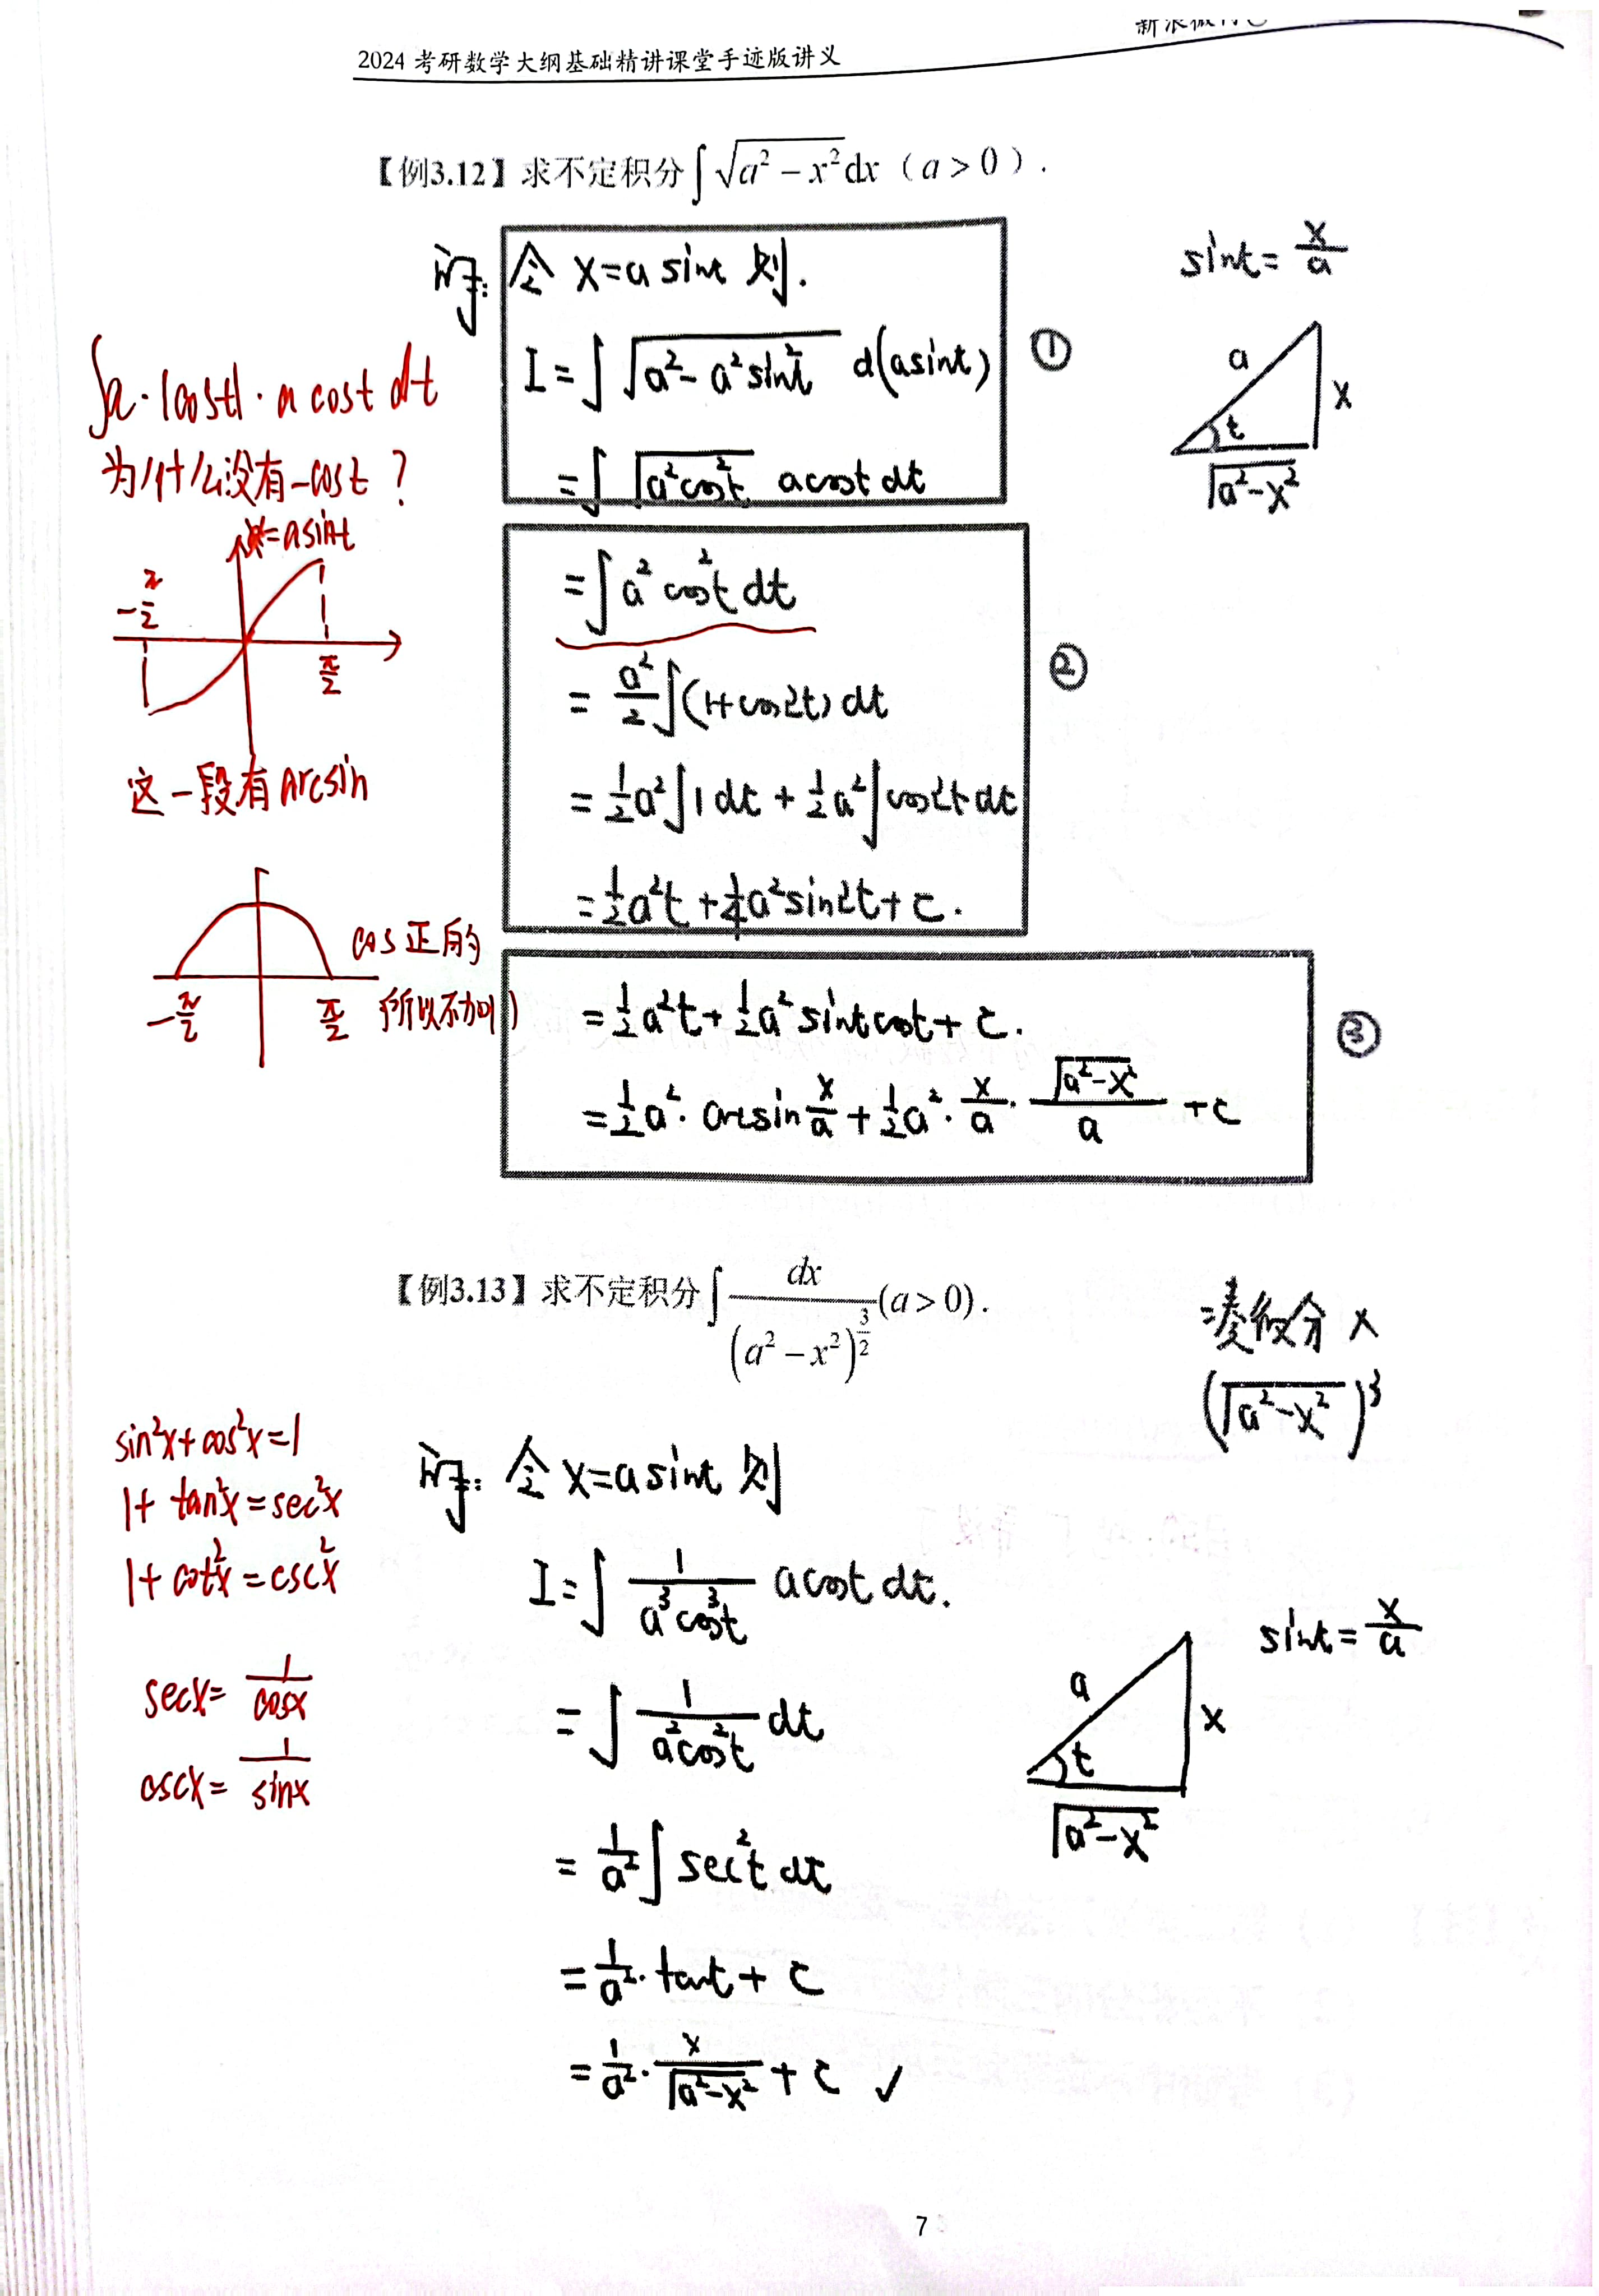 2024 考研数学大纲基础精讲课堂手迹版讲义
【例3.12】求不定积分∫√(a²−x²)dx（a>0）.
解: 令 x=a sint 则.
I=∫√(a²−a²sin²t) d(asint) ①
=∫√(a²cos²t) acost dt
sint=x/a
a
x
t
√(a²−x²)
∫a·|cost|·a cost dt
为什么没有-cost？
x=asint
-π/2
π/2
这一段有 arcsin
=∫a²cos²t dt
=a²/2∫(1+cos2t) dt ②
=½a²∫1 dt+½a²∫cos2t dt
=½a²t+¼a²sin2t+c.
cos 正的
所以不加| |
-π/2
π/2
=½a²t+½a²sint cost+c. ③
=½a²·arcsin x/a+½a²·x/a·√(a²−x²)/a+c
【例3.13】求不定积分∫dx/(a²−x²)^(3/2) (a>0).
凑微分 x
(√(a²−x²))³
sin²x+cos²x=1
1+tan²x=sec²x
1+cot²x=csc²x
secx=1/cosx
cscx=1/sinx
解: 令 x=a sint 则
I=∫1/(a³cos³t) acost dt.
=∫1/(a²cos²t) dt
=1/a²∫sec²t dt
=1/a²·tant+c
=1/a²·x/√(a²−x²)+c ✓
sint=x/a
a
x
t
√(a²−x²)
7